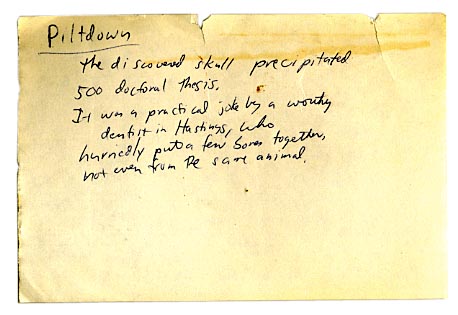 Piltdown
The discovered skull precipitated
500 doctoral thesis.
It was a practical joke by a worthy
dentist in Hastings, who
hurriedly put a few bones together,
not even from the same animal.